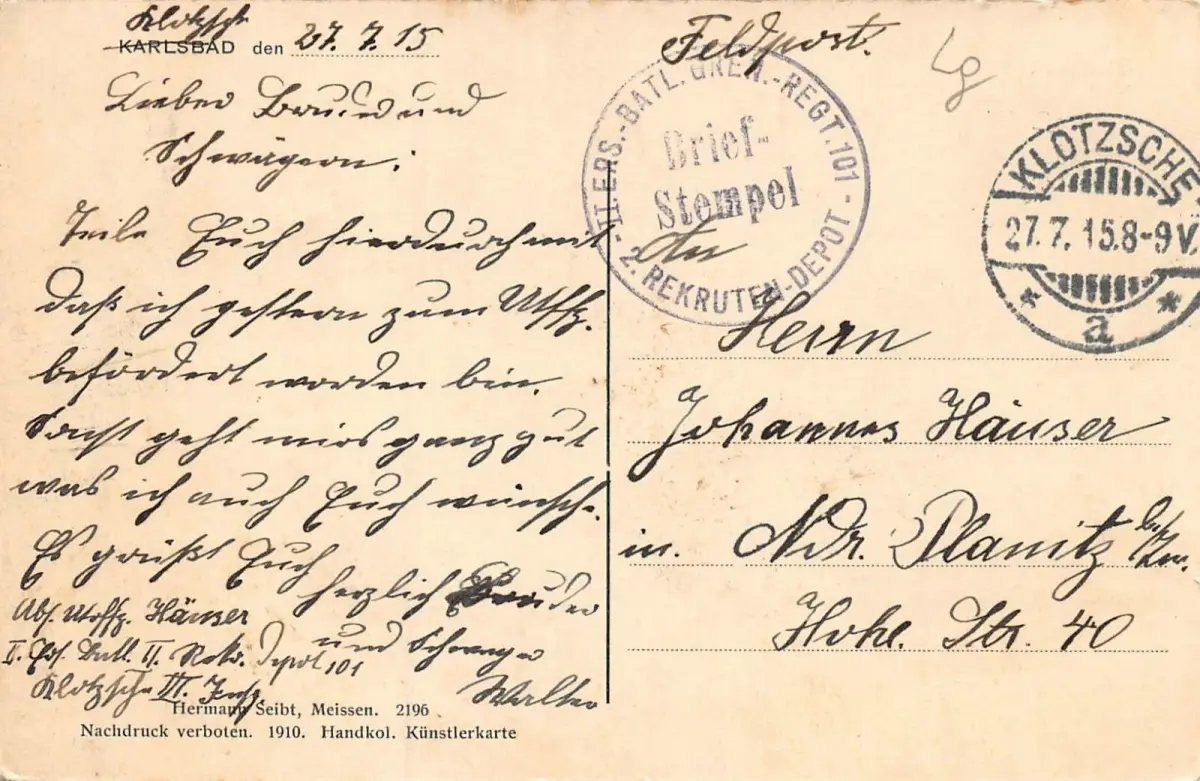 Klotzsche
KARLSBAD den 27. 7. 15
Lieber Bruder und
Schwägerin:
Teile Euch hierdurch mit
daß ich gestern zum Utffz.
befördert worden bin.
Sonst geht mirs ganz gut
was ich auch Euch wünsche.
Es grüßt Euch
herzlich Bruder
und Schwager
Walter
Abs. Utoffz. Häuser
Ers. Batl. II. Rekr. Depot 101
Klotzsche III.
Hermann Seibt, Meissen. 2196
Nachdruck verboten. 1910. Handkol. Künstlerkarte
Feldpost.
Lg
- II. ERS.-BATL. GREN.-REGT. 101 -
Brief-
Stempel
2. REKRUTEN-DEPOT
KLOTZSCHE
27. 7. 15. 8-9 V.
* a *
An
Herrn
Johannes Häuser
in. Ndr. Planitz b/Zw.
Hohe. Str. 40